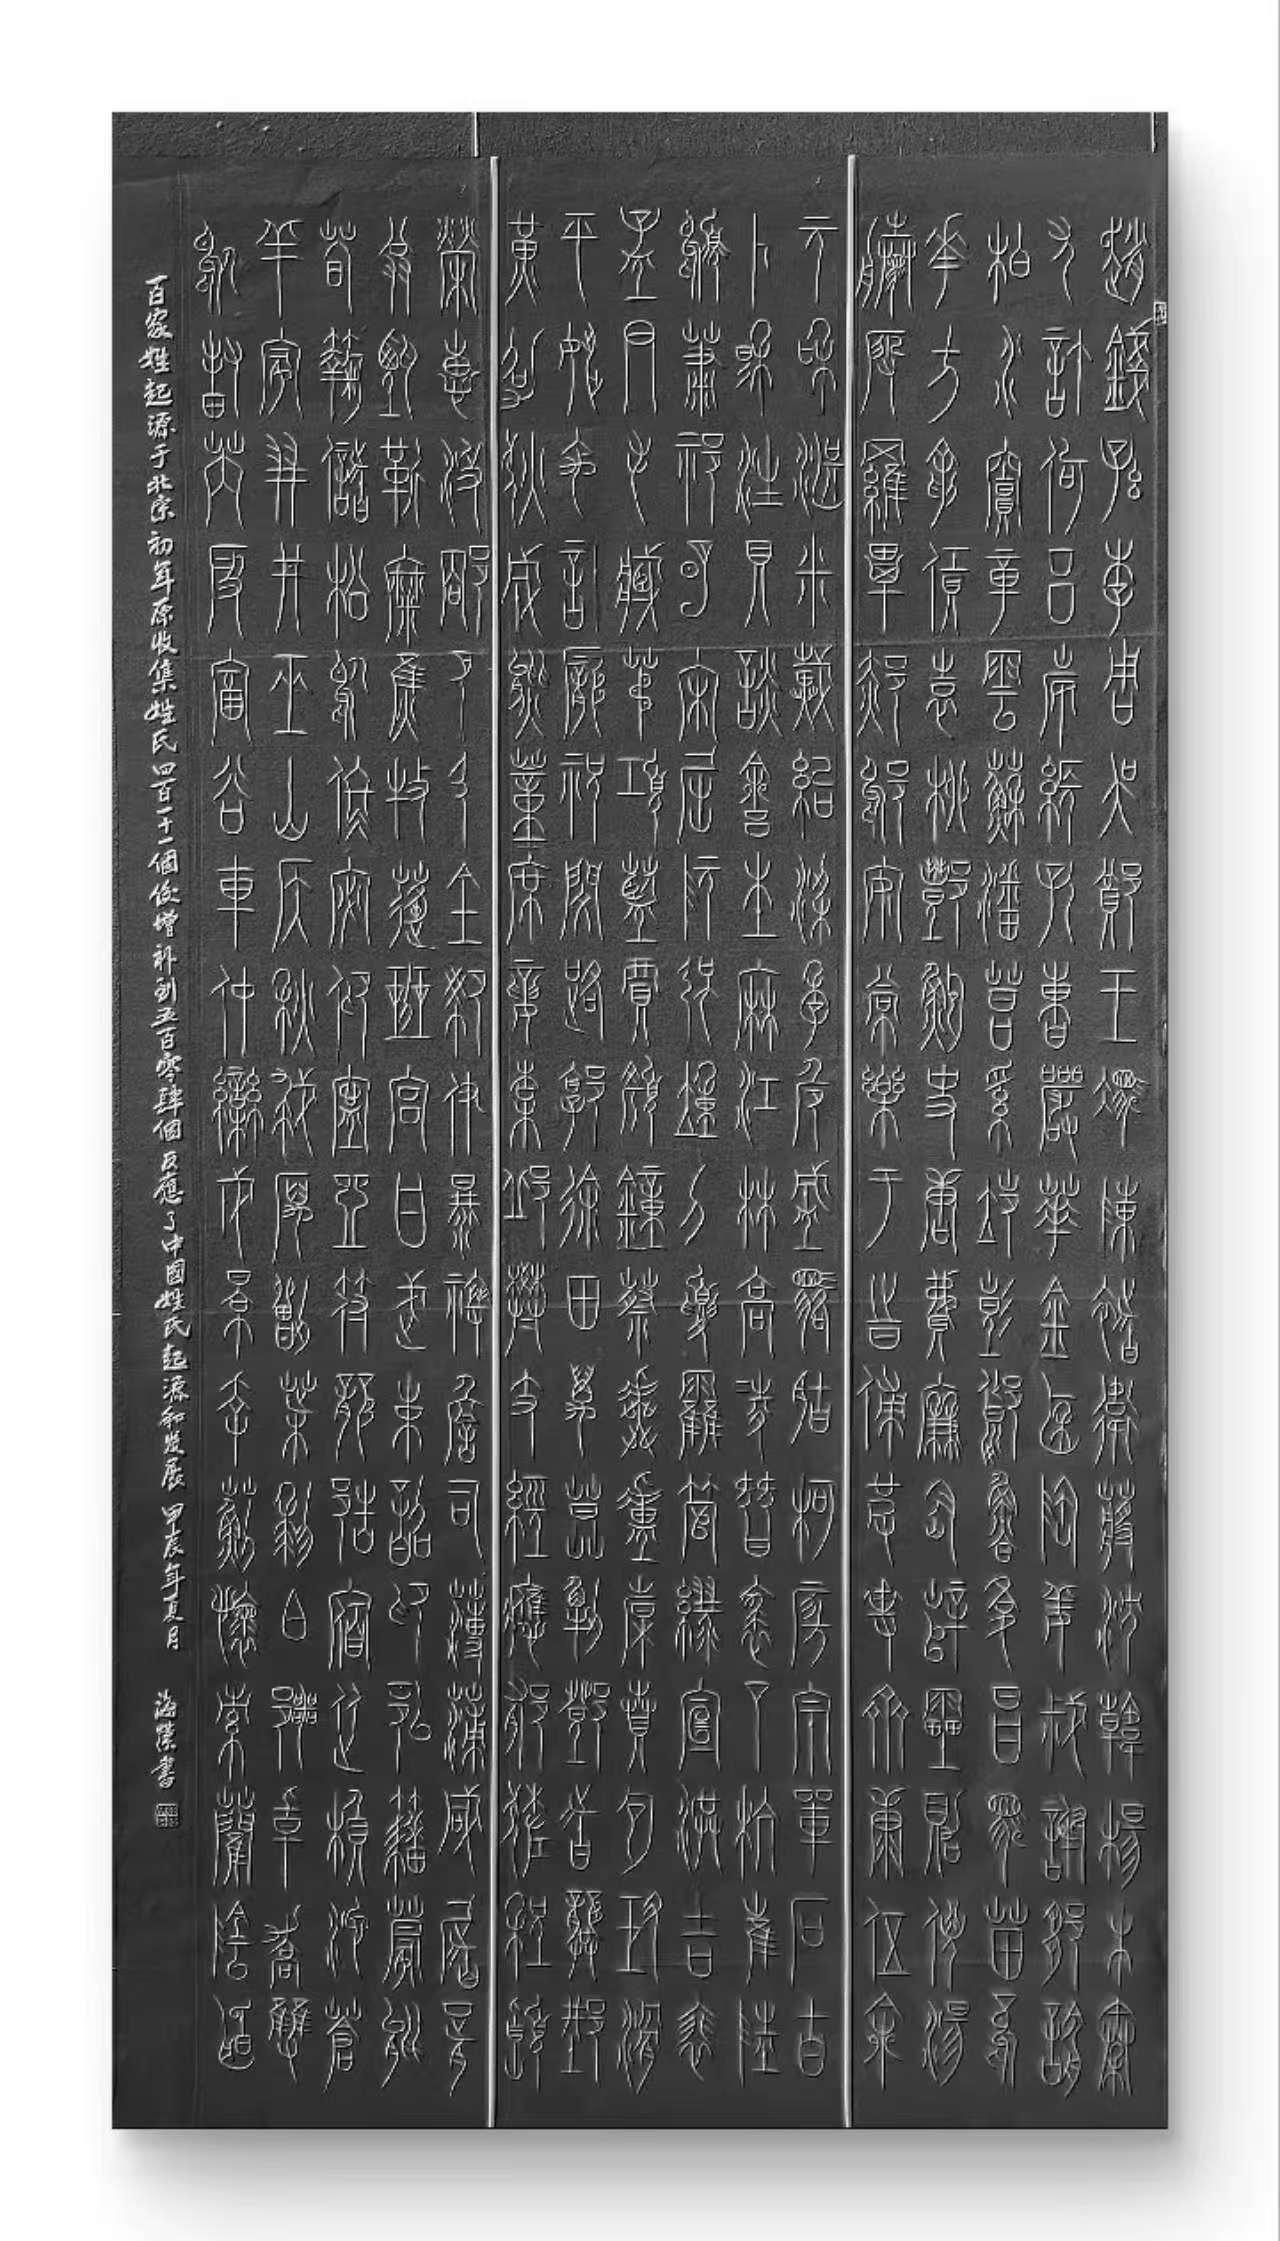 趙錢孫李周吳鄭王馮陳褚衛蔣沈韓楊朱秦
尤許何呂施張孔曹嚴華金魏陶姜戚謝鄒喻
柏水竇章雲蘇潘葛奚范彭郎魯韋昌馬苗鳳
花方俞任袁柳酆鮑史唐費廉岑薛雷賀倪湯
滕殷羅畢郝鄔安常樂于時傅皮卞齊康伍余
元和湛米戴紀梁季危盛駱胡柯房宗單石
卜穆汪貝談舒杜麻江林高凌昝裘丁杭崔陸
顧蕭祁明宋屈阮強童刁夏霍管繆宣洪吉裴
孟尹毛臧茅項藍賈顏鍾蔡虞盧賁包鈕滑
平姚禹計龐祝閔路郭徐田萬莫解鄧諸龔邢
黃邵狄成熊董席婁梅邱樊支經應郁左程嵇
榮惠汲段巴弓全郗伊暴祖詹司薄蒲咸屠胥
翁甄靳糜焦牧蓬班宮甘武束韶印邰籍蒙能
荀麴儲松烏隗宓仰寧鈄符龍郜宿從賴池蒼
羊家羿井巫山侯秋仇厲劉葉黎白鄂卓喬雙
於封芮邴富谷車仲欒戎景幸薊懷索藺陰
百家姓起源于北宋初年原收集姓氏四百一十一個後增补到五百零肆個反應了中國姓氏起源和发展 甲辰年夏月 海榮書